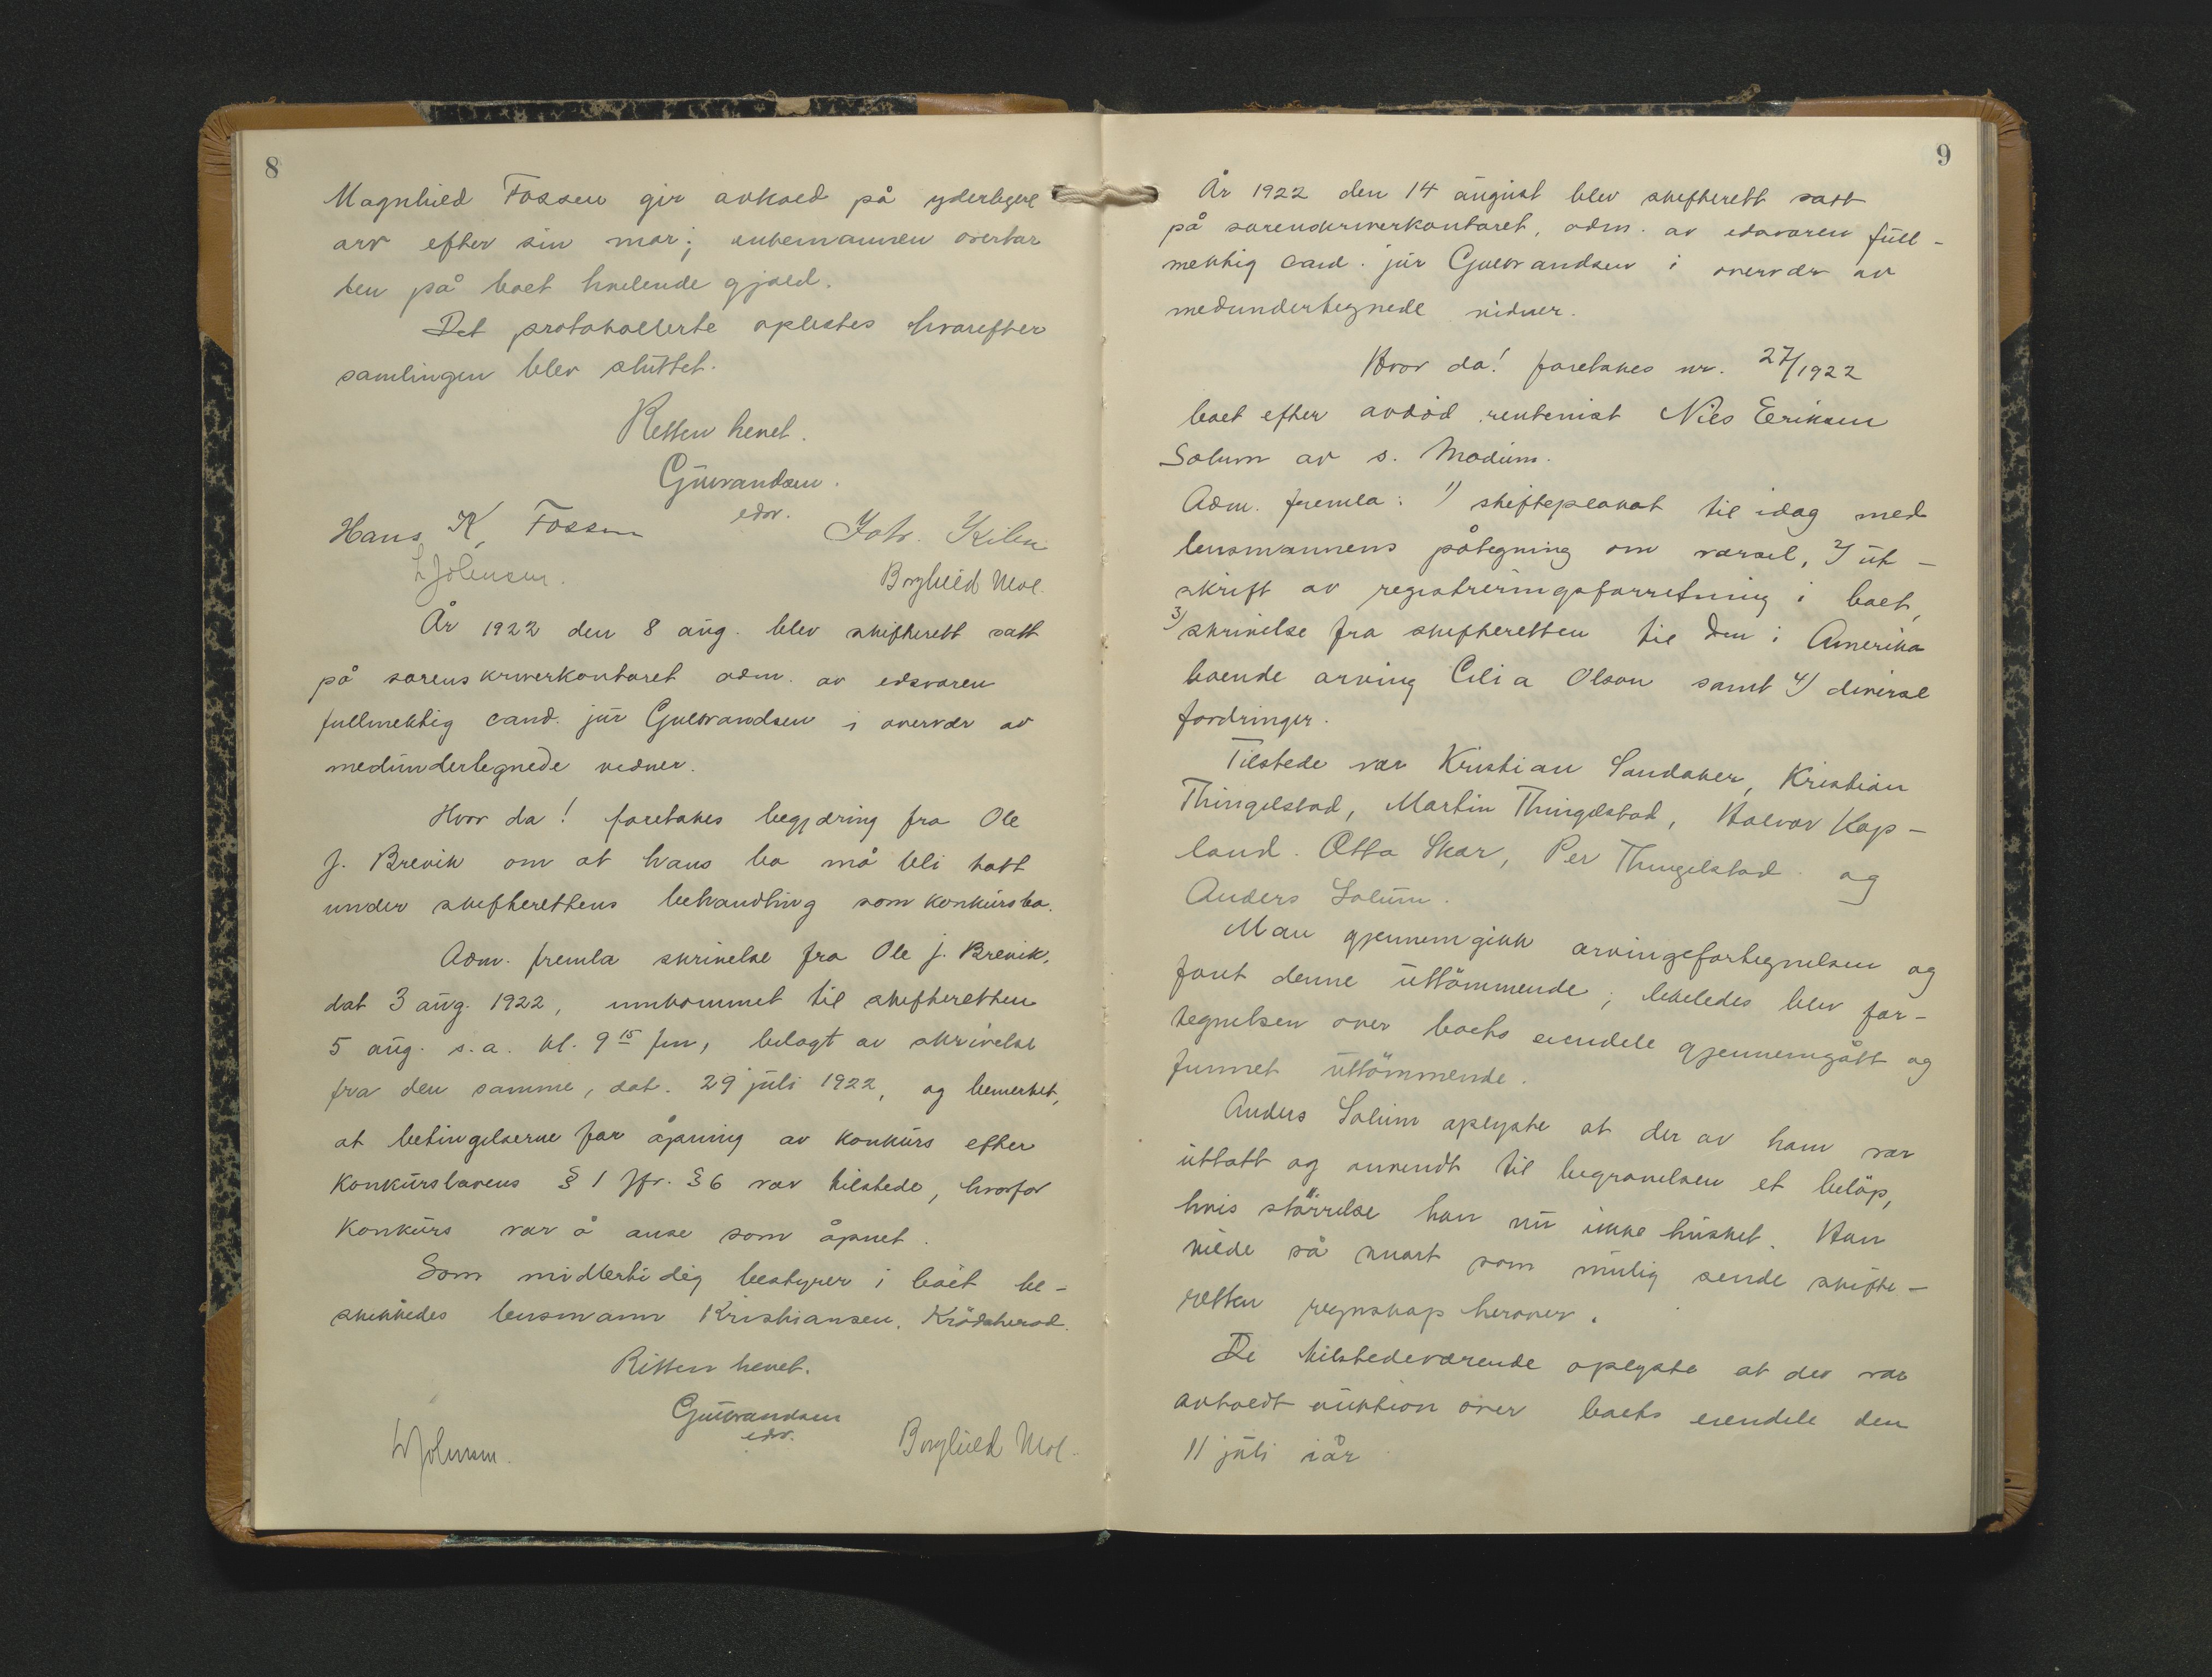 8
Magnhild Fossen gir avkald på yderligere
arv efter sin mor; enkemannen overtar
den på boet hvilende gjæld.
Det protokollerte oplestes hvorefter
samlingen blev sluttet.
Retten hevet.
Gulbrandsen.
edsv.
Hans K. Fossen
Joh. Kilen
L Johnsen.
Borghild Moe.
År 1922 den 8 aug. blev skifterett satt
på sorenskriverkontoret adm. av edsvoren
fullmektig cand. jur Gulbrandsen i overvær av
medundertegnede vidner.
Hvor da! foretokes begjæring fra Ole
J. Brevik om at hans bo må bli tatt
under skifterettens behandling som konkursbo.
Adm. fremla skrivelse fra Ole J. Brevik,
dat 3 aug. 1922, innkommet til skifteretten
5 aug. s.a. kl. 9 15 fm, bilagt av skrivelse
fra den samme, dat. 29 juli 1922, og bemerket,
at betingelserne for åpning av konkurs efter
Konkurslovens § 1 jfr. § 6 var tilstede, hvorfor
Konkurs var å anse som åpnet.
Som midlertidig bestyrer i boet be-
skikkedes lensmann Kristiansen, Krödsherad.
Retten hevet.
Gulbrandsen
edsv.
L Johnsen.
Borghild Moe.
9
År 1922 den 14 august blev skifterett satt
på sorenskriverkontoret, adm. av edsvoren full-
mektig cand. jur Gulbrandsen i overvær av
medundertegnede vidner.
Hvor da! foretokes nr. 27/1922
boet efter avdöd rentenist Nils Eriksen
Solum av s. Modum.
Adm. fremla: 1) skifteplakat til idag med
lensmannens påtegning om varsel, 2) ut-
skrift av registreringsforretning i boet,
3) skrivelse fra skifteretten til den i Amerika
boende arving Cilia Olson samt 4) diverse
fordringer.
Tilstede var Kristian Sandaker, Kristian
Thingelstad, Martin Thingelstad, Halvor Kop-
land. Otto Skar, Per Thingelstad og
Anders Solum.
Man gjennemgikk arvingefortegnelsen og
fant denne uttömmende; likeledes blev for-
tegnelsen over boets eiendele gjennemgått og
funnet uttömmende.
Anders Solum oplyste at der av ham var
uttatt og anvendt til begravelsen et belöp,
hvis störrelse han nu ikke husket. Han
vilde så snart som mulig sende skifte-
retten regnskap herover.
De tilstedeværende oplyste at der var
avholdt auktion over boets eiendele den
11 juli iår